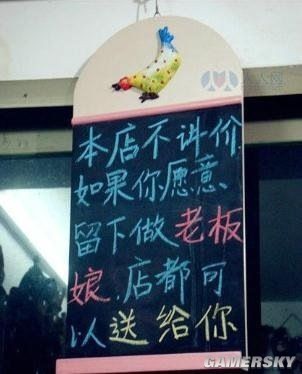 本店不讲价
如果你愿意
留下做老板
娘,店都可
以送给你
GAMERSKY